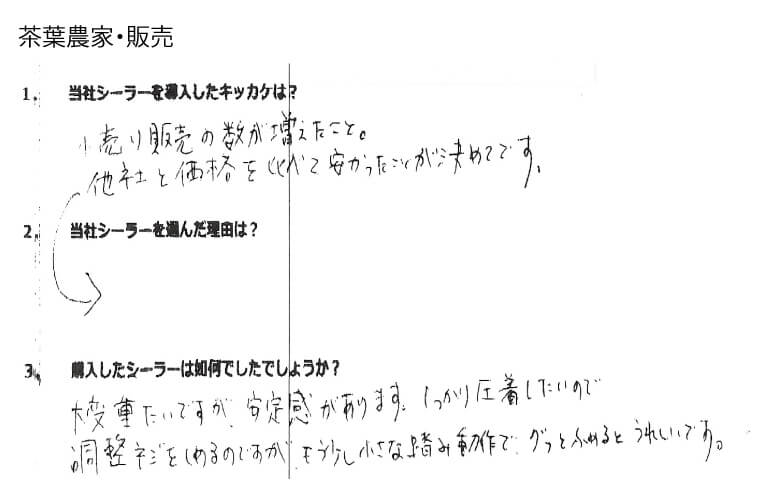 茶葉農家・販売
1. 当社シーラーを導入したキッカケは？
小売り販売の数が増えたこと。
他社と価格を比べて安かったことが決めてです。
2. 当社シーラーを選んだ理由は？
3. 購入したシーラーは如何でしたでしょうか？
大変重たいですが、安定感があります。しっかり圧着したいので
調整ネジをしめるのですが、もう少し小さな踏み動作で、グッとふめるとうれしいです。